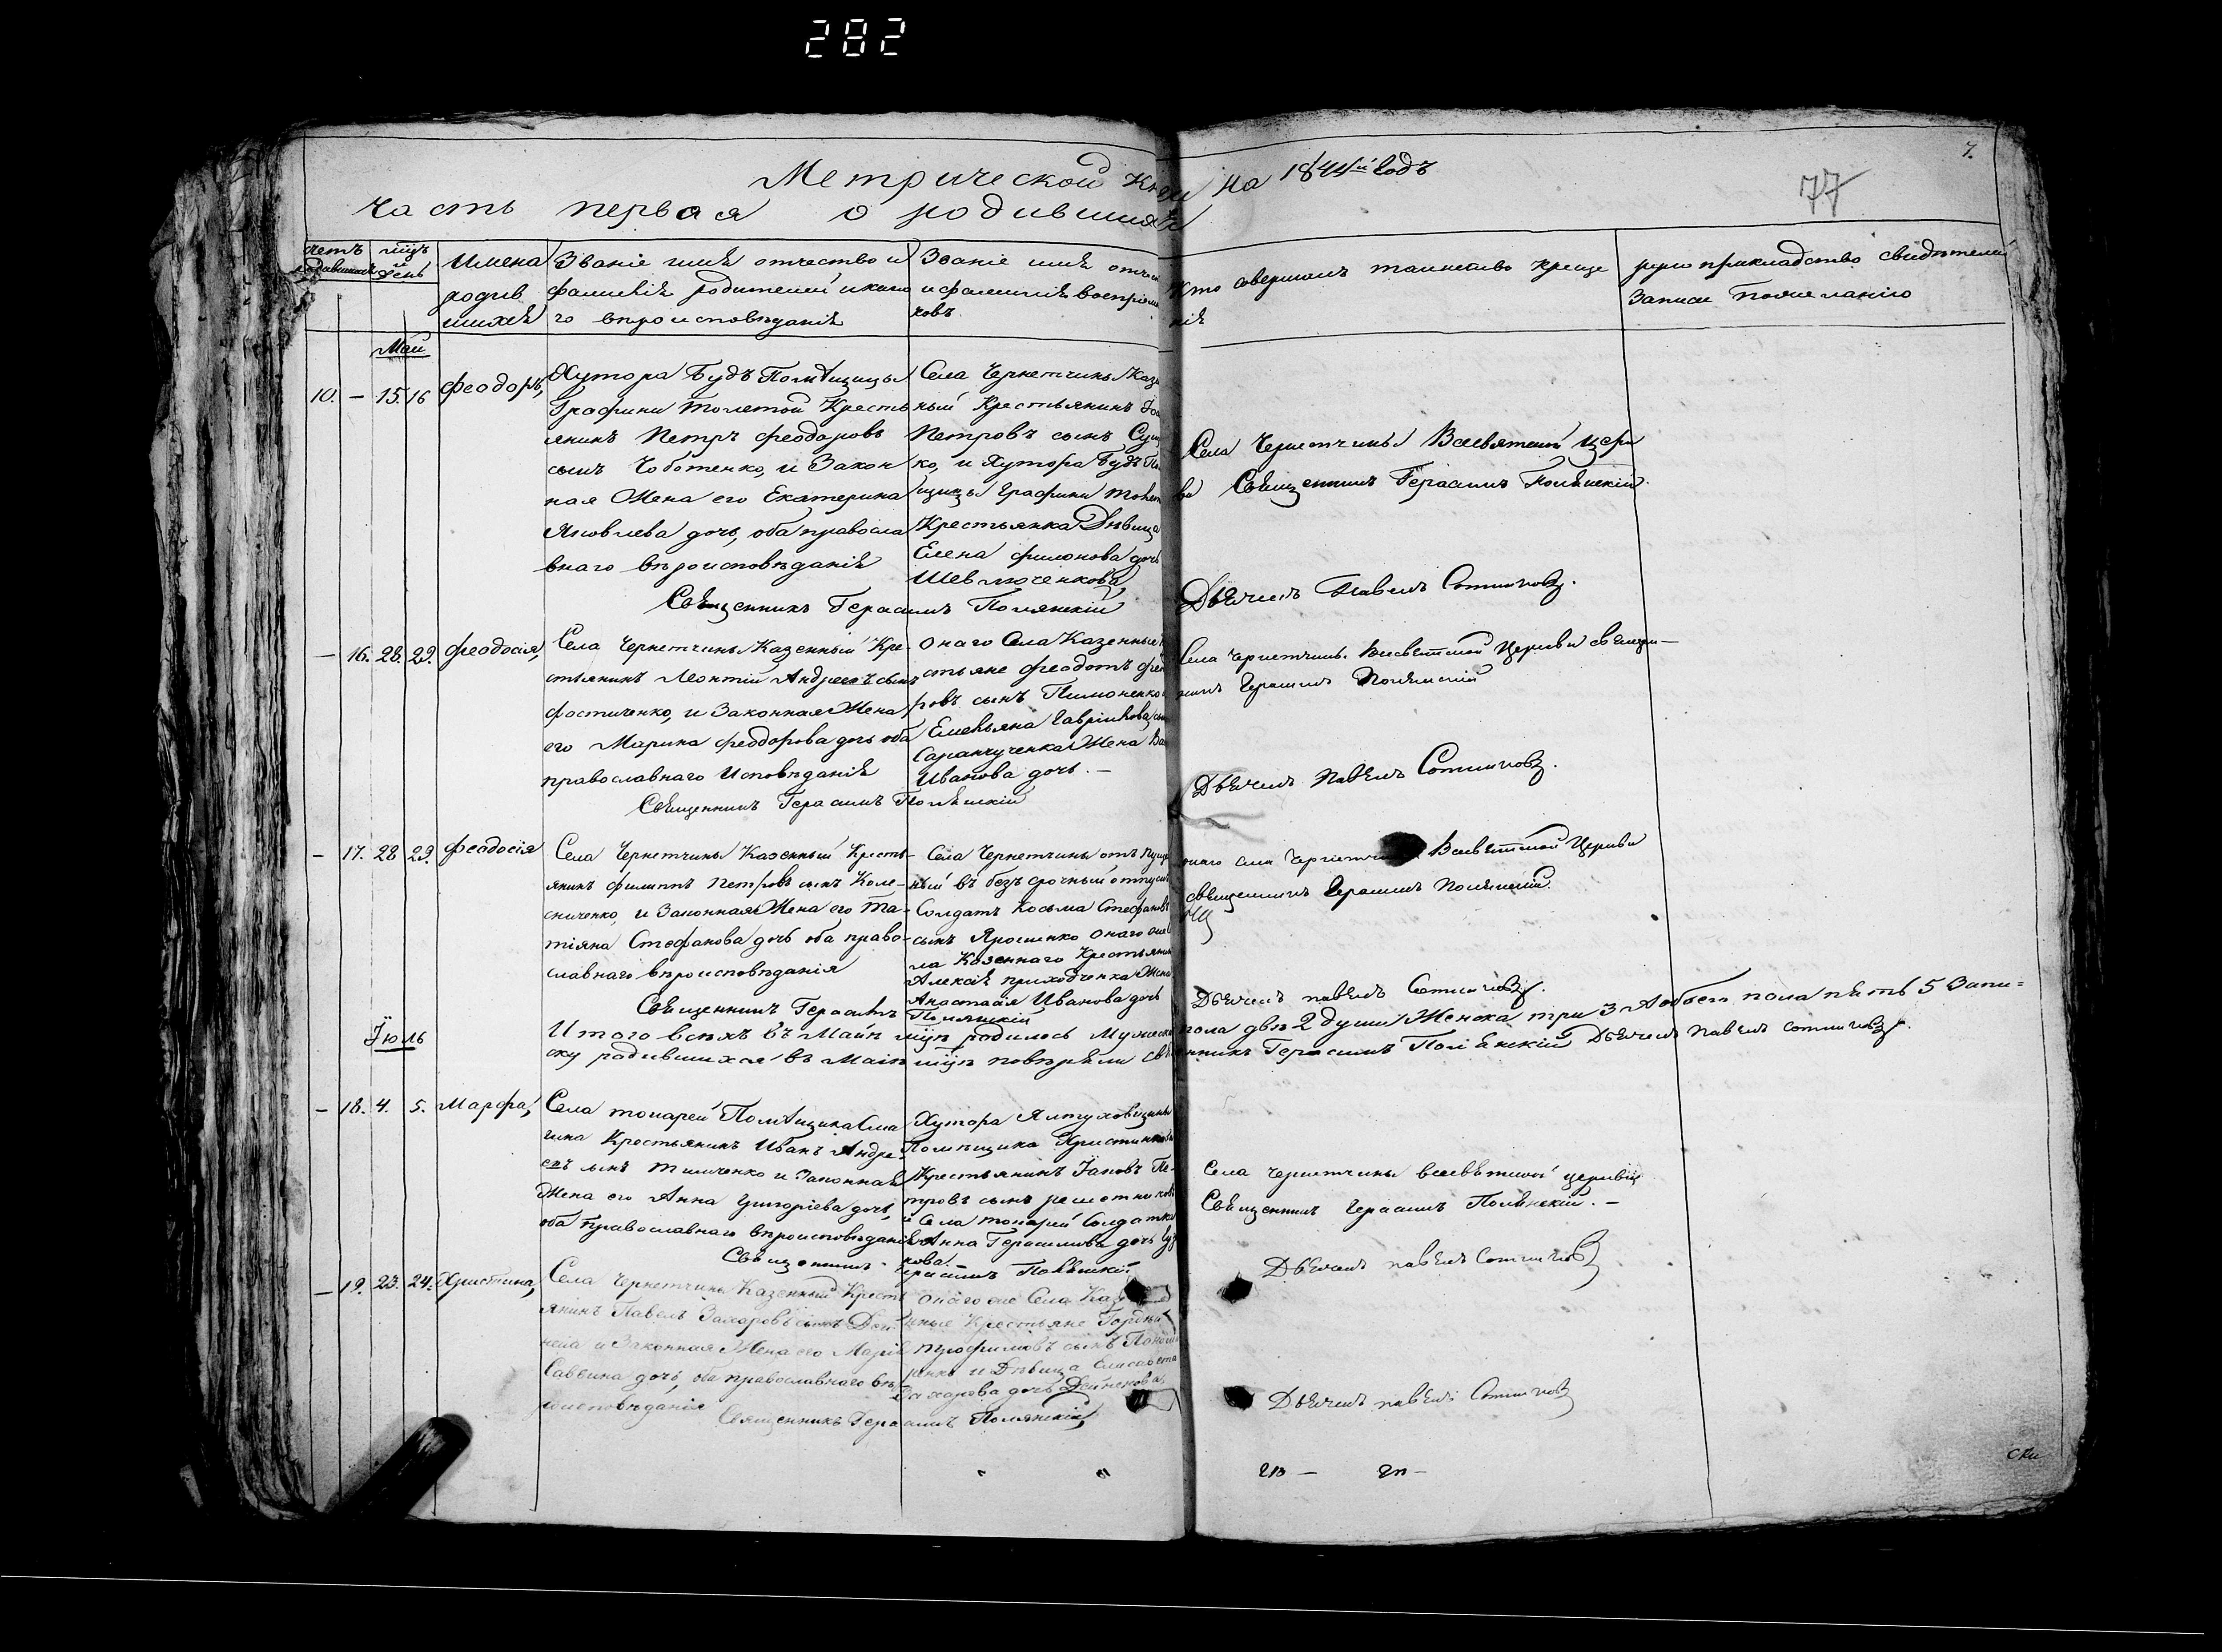 282
Метрической Кни ги на 1844й Годъ
7.
77
Часть первая о родившихся
счетъ родившихся
мцъ и день
Имена родив шихся
Званіе имя отчество и фамилія родителей и како го вѣроисповѣданія
Званіе имя отчес и фамилія воспріем ковъ
Кто совершалъ таинство креще нія
рукоприкладство свидѣтелей записи по желанію
Май
10. — 15. 16 Феодоръ,
Хутора Будъ Помѣщицы
Графини Толстой Кресть
янинъ Петръ Феодоровъ
сынъ Чоботенко, и Закон
ная Жена его Екатерина
Яковлева дочь, оба правосла
внаго вѣроисповѣданія
Села Чернетчины Каз
ный Крестьянинъ
Петровъ сынъ
ко, и Хутора Будъ
щицы Графини Толст
Крестьянка Дѣвица
Елена Филонова дочь
Шевлюченкова
Священникъ Герасимъ Полянскій
Села Чернетчины Всесвятской Церк
ви Священникъ Герасимъ Полянскій.
Дьячекъ Павелъ Сотниковъ.
— 16. 28. 29. Феодосія,
Села Чернетчины Казенный Кре-
стьянинъ Леонтій Андреевъ сынъ
Фостиченко, и Законная Жена
его Марина Феодорова дочь оба
православнаго Исповѣданія
Онаго Села Казенные
стьяне Феодотъ
ровъ сынъ Пимоненко
Емельяна Гавріилова
Саранчученка Жена
Иванова дочь. —
Священникъ Герасимъ Полянскій
Села Чернетчины Всесвятской Церкви священ—
никъ Герасимъ Полянскій
Дьячекъ Павелъ Сотниковъ.
— 17. 28 29. Феодосія
Села Чернетчины Казенный Кресть-
янинъ Филиппъ Петровъ сынъ Коле-
сниченко, и Законная Жена его Та-
тіяна Стефанова дочь оба право-
славнаго вѣроисповѣданія
Села Чернетчины отпущ
ный въ безъ срочный отпускъ
Солдатъ Косьма Стефановъ
сынъ Ярошенко онаго же
ла Казеннаго Крестьянина
Алексія приходченка Жена
Анастасія Иванова дочь
Священникъ Герасимъ Полянскій
онаго села Чернетчины Всесвятской Церкви
священникъ Герасимъ Полянскій.
Дьячекъ павелъ Сотниковъ.
Итого всѣхъ въ Маѣ мцѣ родилось Мужеска пола двѣ 2 души Женска три 3 А обоего пола пять 5 Запи=
ску родившихся въ Маѣ мцѣ повѣряли Священникъ Герасимъ Полянскій Дьячекъ Павелъ Сотниковъ.
Іюль
— 18. 4. 5. Марфа,
Села токарей Помѣщика
Крестьянинъ Иванъ Андре-
евъ сынъ Тимченко и Законная
Жена его Анна Григоріева дочь,
оба православнаго вѣроисповѣданія
Хутора Ялтуховщины
Помѣщика
Крестьянинъ Іаковъ Пе-
тровъ сынъ решотников
и Села токарей Солдатка
Анна Герасимова дочь
кова. —
Священникъ Герасимъ Полянскій
Села Чернетчины всесвятской церкви
Священникъ Герасимъ Полянскій. —
Дьячекъ павелъ Сотниковъ
— 19. 23. 24. Христина,
Села Чернетчины Казенный Кресть
янинъ Павелъ Захаровъ сынъ Дей
нека и Законная Жена его Марія
Саввина дочь, оба православнаго вѣ-
роисповѣданія
онаго же Села Каз
нные Крестьяне Гордѣй
Трофимовъ сынъ
ренко и Дѣвица Елисавета
Захарова дочь Дейнекова
Священникъ Герасимъ Полянскій
Дьячекъ павелъ Сотниковъ